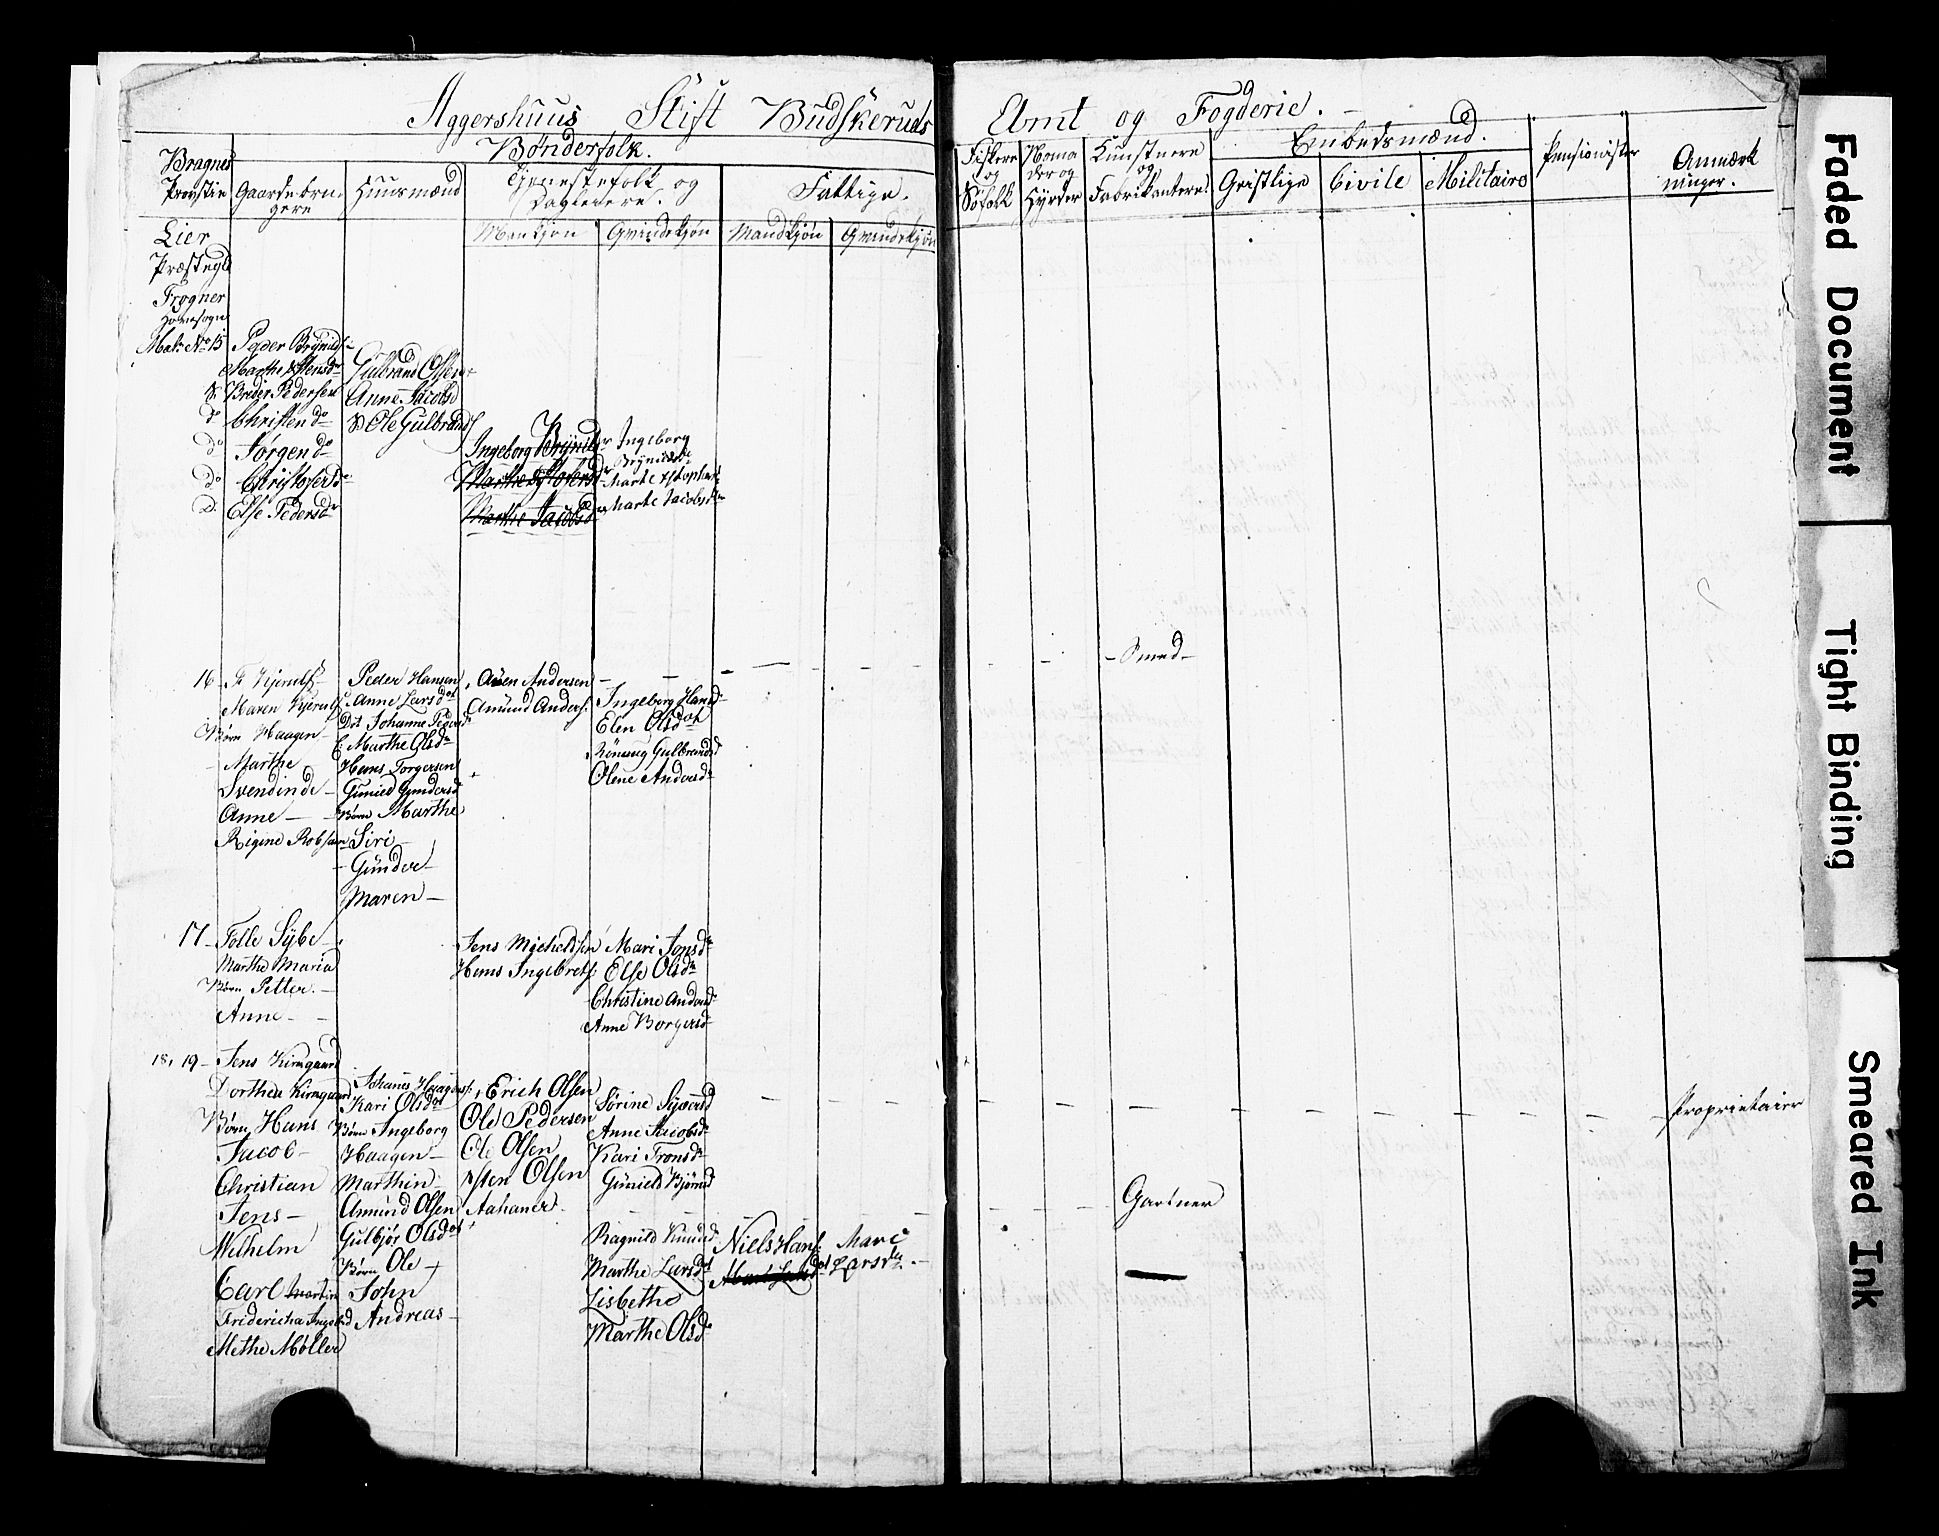 Aggershuus Stift Budskeruds Amt og Fogderie.
Bragnes
Provstie
Bønderfolk.
Gaardebru-
gere
Huusmænd
Tjenestefolk og
Dagleiere.
Fattige.
Mankjøn
Qvindekjøn
Mandkjøn
Qvindekjøn
Fiskere
og
Søfolk
Noma
der og
Hyrder
Kunstnere
og
Fabrikantere
Embedsmænd.
Geistlige
Civile
Militaire
Pensionister
Anmærk
ninger.
Lier
Præstegld
Frogner
Hovedsogn
Mat: No 15
Peder Brynilds:
Marthe
S: Breder Pedersen
do Christen do
do Jørgen do
do Christofer do
D: Else Pedersdr
Gulbrand Olsen
Anne Jacobsd
S Ole Gulbrands
Ingeborg Brynild
Marthe
Marthe Jacobsd
Ingeborg
Brynildsdr
Marte
Marte Jacobsdr
16
Kjerulf
Maren Kjerulf
Børn Haagen
Marthe
Svendinde
Anne
Rigine Robsam
Peder Hansen
Anne Larsdot
Dot Johanne Peders
E: Marthe Olsdr
Hans Torgersen
Gunild Gundersd
Børn Marthe
Siri
Gunder
Maren
Amund Anders:
Ingeborg Hansd
Elen Olsdot
Gulbrandsd
Olene Andersd
Smed
17
Tolle Sybe
Marthe Maria
Børn Petter
Anne
Jens Micheldsen
Hans Ingebrets:
Mari Jonsdr
Else Olsdr
Christine Andersd
Anne Borgersd
18, 19
Jens Kirngaard
Dorthea Kirngaard
Børn Hans
Jacob
Christian
Jens
Wilhelm
Carl Martin
Fridericha
Methe Møller
Johanes Haagens:
Kari Olsdot
Børn Ingeborg
Haagen
Marthin
Amund Olsen
Gulbjør Olsdot
Børn Ole
John
Andreas
Erich Olsen
Ole Pedersen
Ole Olsen
Østen Olsen
Sørine
Anne Jacobsdr
Kari Tronsdr
Gunild Bjørnsd
Ragnild Knudsd
Marthe Larsdot
Lisbethe
Marthe Olsd
Niels Hans:
Mari
Larsdtr
Gartner
Proprietairr
Faded Document
Tight Binding
Smeared Ink